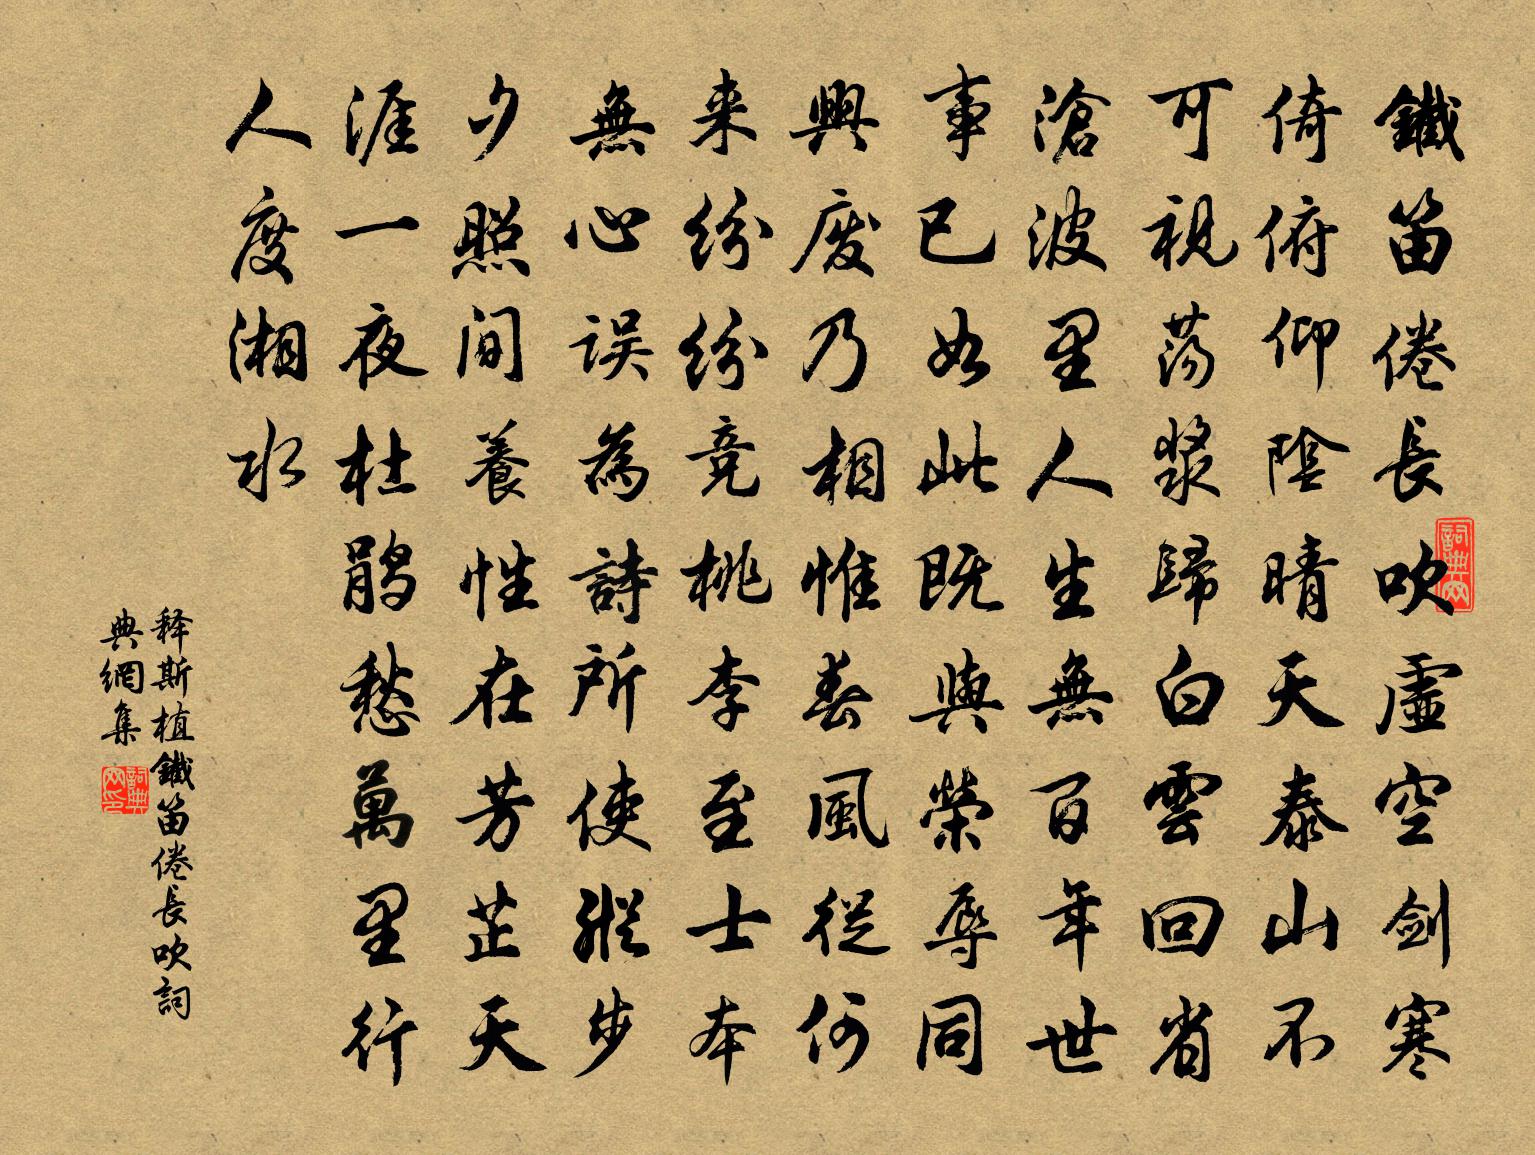 鐵笛倦長吹虛空劍寒
倚俯仰陰晴天泰山不
可視蕩漿歸白雲回省
滄波里人生無百年世
事已如此既與榮辱同
興廢乃相惟春風從何
来紛紛竞桃李至士本
無心误為詩所使縱步
夕照间養性在芳芷天
涯一夜杜鹃愁萬里行
人度湘水
释斯植鐵笛倦長吹詞
典網集
詞典网
詞典网印